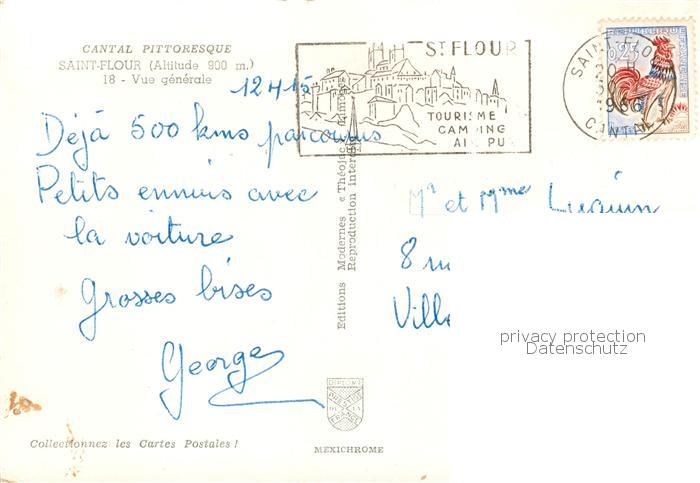 CANTAL PITTORESQUE
SAINT-FLOUR (Altitude 900 m.)
18 - Vue générale
12H15
Déjà 500 kms parcourus
Petits ennuis avec
la voiture
Grosses bises
Georges
Collectionnez les Cartes Postales !
Editions Modernes « Théojac »
Reproduction interdite
DIPLOME
PRESTIGE
DE LA
FRANCE
MEXICHROME
ST FLOUR
TOURISME
CAMPING
AIR PUR
SAINT-FLOUR
1966
CANTAL
0,25
Mr et Mme
8 ru
Ville
privacy protection
Datenschutz